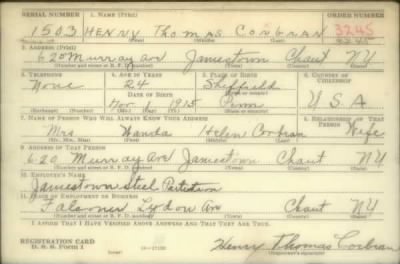 SERIAL NUMBER 1. NAME (Print) ORDER NUMBER
1503 HENRY THOMAS CORBRAN 3245
(First) (Middle) (Last)
2. ADDRESS (Print)
620 Murray Av Jamestown Chaut NY
(Number and street or R. F. D. number) (Town) (County) (State)
3. TELEPHONE 4. AGE IN YEARS 5. PLACE OF BIRTH 6. COUNTRY OF CITIZENSHIP
None 24 Sheffield
DATE OF BIRTH
Nov 1 1915 Penn U.S.A
(Exchange) (Number) (Mo.) (Day) (Yr.) (State or country)
7. NAME OF PERSON WHO WILL ALWAYS KNOW YOUR ADDRESS 8. RELATIONSHIP OF THAT PERSON
Mrs Wanda Helen Corbran Wife
(Mr., Mrs., Miss) (First) (Middle) (Last)
9. ADDRESS OF THAT PERSON
620 Murray Ave Jamestown Chaut NY
(Number and street or R. F. D. number) (Town) (County) (State)
10. EMPLOYER'S NAME
Jamestown Steel Partition
11. PLACE OF EMPLOYMENT OR BUSINESS
Falconer Av Chaut NY
(Number and street or R. F. D. number) (Town) (County) (State)
I AFFIRM THAT I HAVE VERIFIED ABOVE ANSWERS AND THAT THEY ARE TRUE.
REGISTRATION CARD
D. S. S. Form 1 Henry Thomas Corbran
(Registrant's signature)